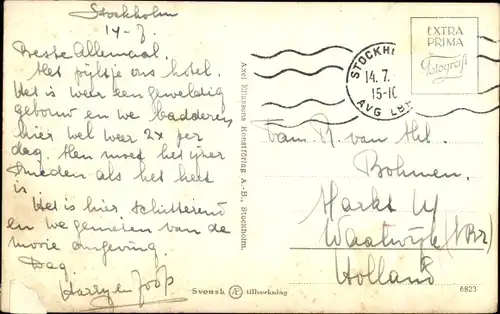 Stockholm
14-7.
Beste Allemaal.
Het pijltje ons hotel.
Het is weer een geweldig
gebouw en we badderen
hier wel weer 2x per
dag. Men moet het ijzer
smeden als het heet
is.
Het is hier schitterend
en we genieten van de
mooie omgeving
Dag.
Harry en Joop
Axel Eliassons Konstförlag A.-B., Stockholm.
Svensk Æ tillverkning
EXTRA
PRIMA
Fotografi
STOCKH
14.7.
15-10
AVG LBR
Fam. R. van
Bohmen.
Markt 4
Waalwijk (NBr)
Holland
6823